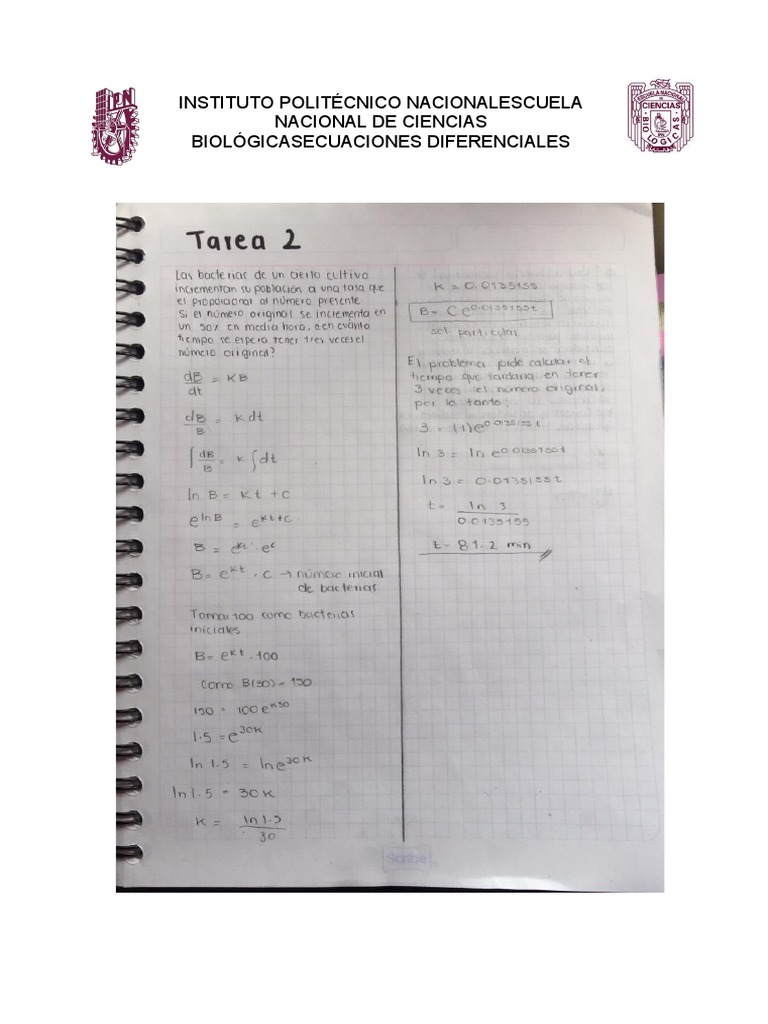 INSTITUTO POLITÉCNICO NACIONALESCUELA
NACIONAL DE CIENCIAS
BIOLÓGICASECUACIONES DIFERENCIALES
IPN
ESCUELA NACIONAL DE CIENCIAS BIOLOGICAS
Tarea 2
Las bacterias de un cierto cultivo
incrementan su población a una tasa que
el proporcional al número presente
Si el número original se incrementa en
un 50% en media hora, a en cuánto
tiempo se espera tener tres veces el
número original?
dB/dt = KB
dB/B = K dt
∫ dB/B = K ∫ dt
ln B = Kt + C
e^lnB = e^Kt+C
B = e^Kt · e^C
B = e^Kt · C → número inicial
de bacterias
Tomar 100 como bacterias
iniciales
B = e^Kt · 100
como B(30) = 150
150 = 100 e^K30
1.5 = e^30K
ln 1.5 = ln e^30K
ln 1.5 = 30K
K = ln 1.5 / 30
K = 0.0135155
B = C e^0.0135155t
sol particular
El problema pide calcular el
tiempo que tardaría en tener
3 veces el número original,
por lo tanto:
3 = (1) e^0.0135155t
ln 3 = ln e^0.0135155t
ln 3 = 0.0135155t
t = ln 3 / 0.0135155
t = 81.2 min
Scribe